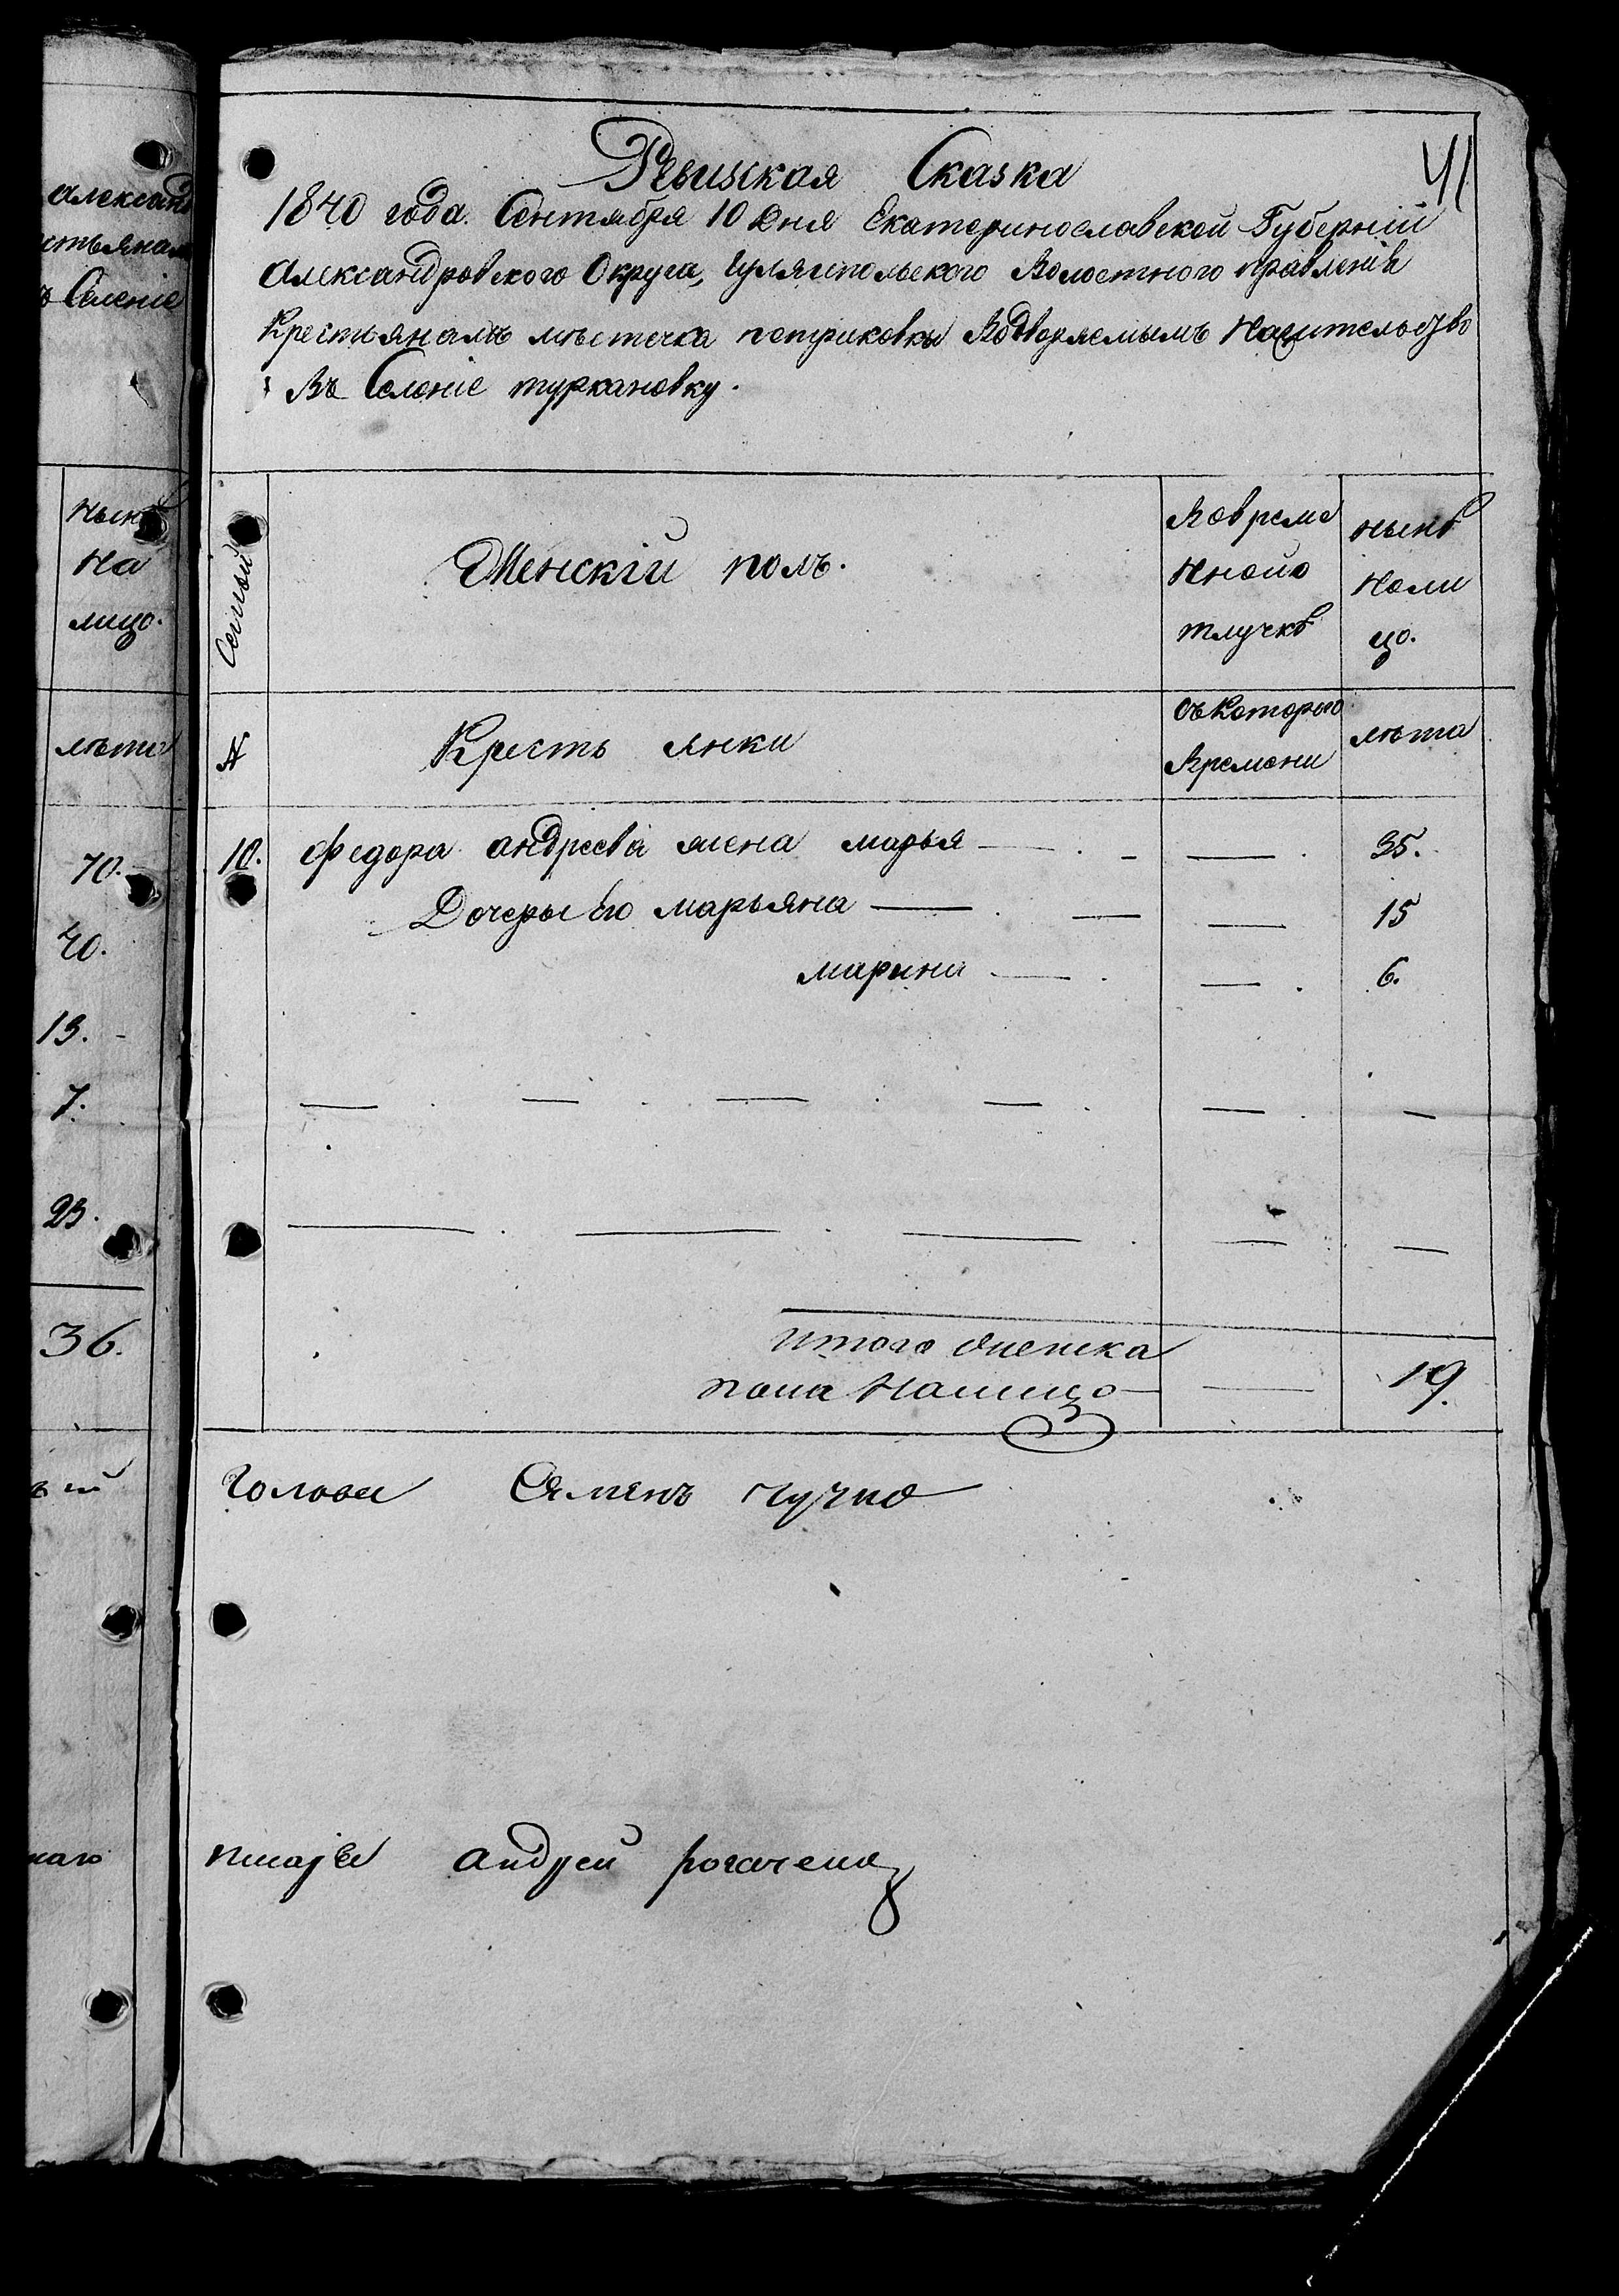 Александ
стьянам
ъ Селеніе
нынѣ
на
лицо.
лѣта
70.
40.
13.
7.
23.
36.
41
Ревизская Сказка
1840 года. Сентября 10 дня Екатеринославской Губерніи
Александровского Округа, Гуляйпольского Волостного правленія
Крестьянамъ мѣстечка петриковки Водворяемымъ Нажительство
Въ Селеніе туркановку.
Семьи
Женскій полъ.
Вовреме
нной о
тлучкѣ
нынѣ
нали
цо.
№
Кресть янки
съ Которого
Времени
лѣта
10. Федора андреева жена марья — — 35.
Дочеры Его марьяна — — 15
марина — — 6.
Итого женска
пола Налицо — 19.
Голова Сяменъ
писарь андрей рогачевъ